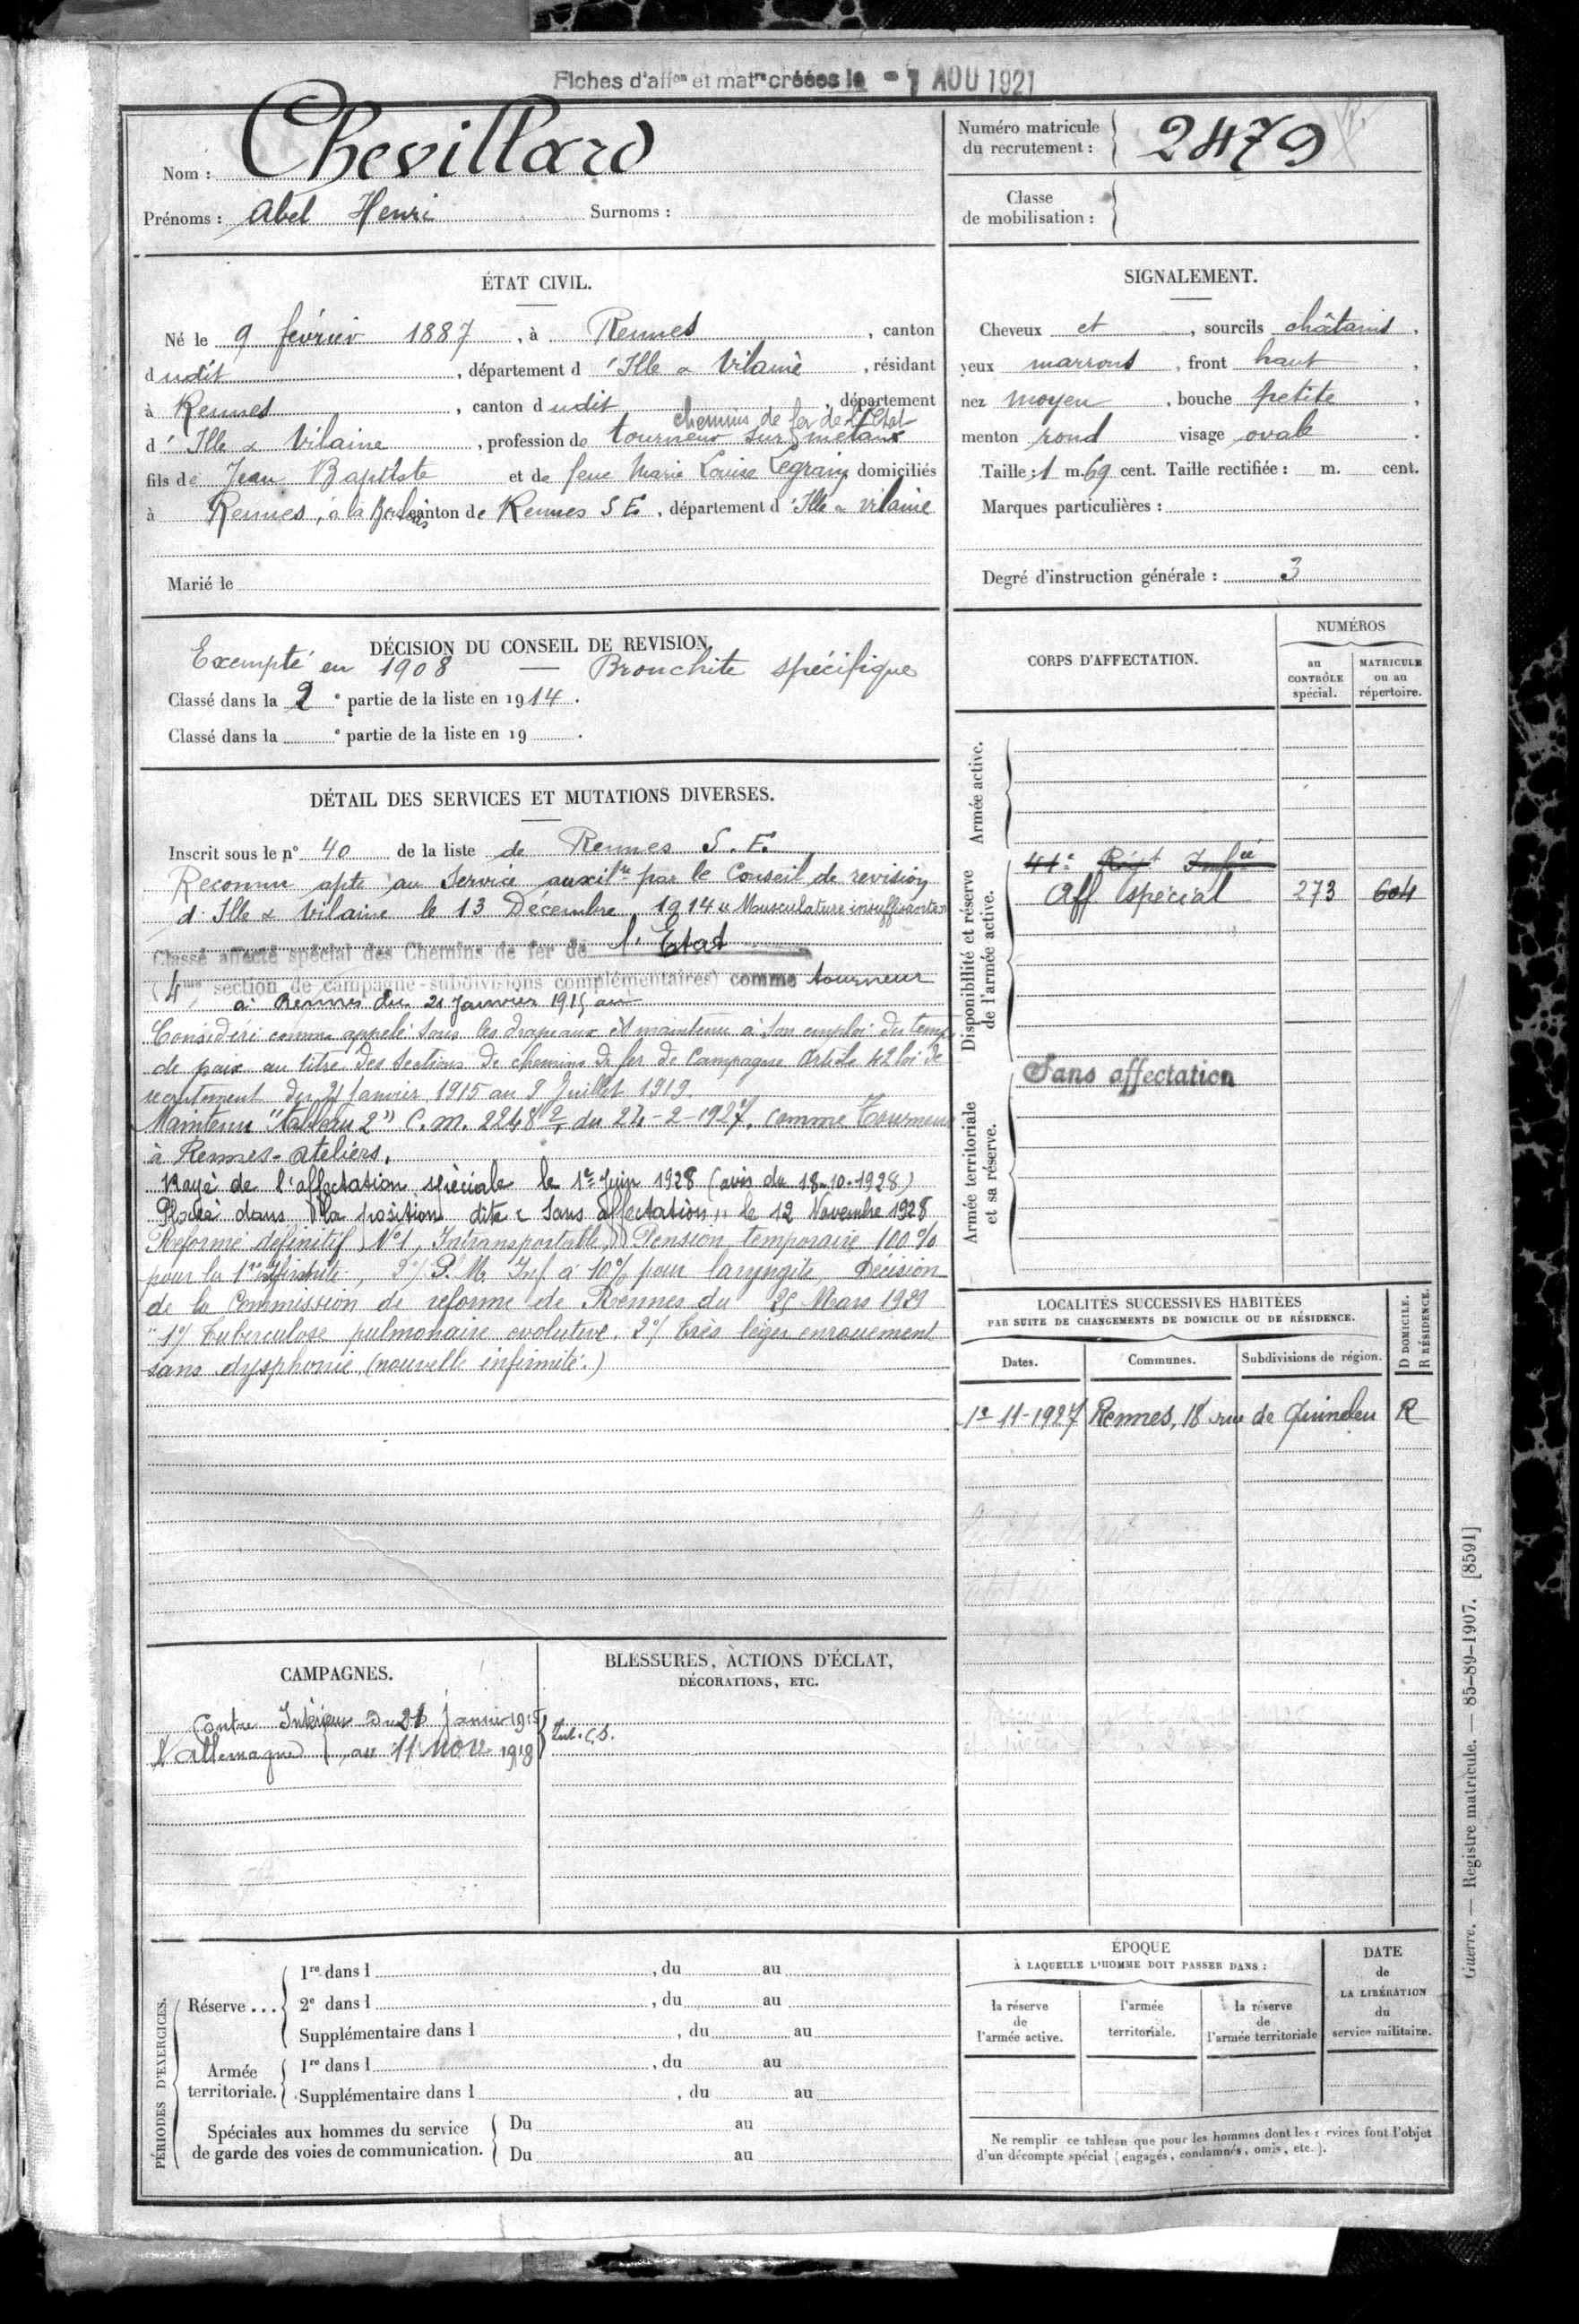 Fiches d'affon et matre créées le -1 AOU 1921
Nom : Chevillard
Prénoms : Abel Henri Surnoms :
Numéro matricule
du recrutement : 2479
Classe
de mobilisation :
ÉTAT CIVIL.
Né le 9 février 1887, à Rennes, canton
dudit, département d'Ille & Vilaine, résidant
à Rennes, canton dudit, département
chemins de fer de l'Etat
d'Ille & Vilaine, profession de tourneur sur métaux
fils de Jean Baptiste et de feue Marie Louise Legrain domiciliés
à Rennes, à la canton de Rennes S E, département d'Ille & Vilaine
Marié le
SIGNALEMENT.
Cheveux et, sourcils châtains,
yeux marrons, front haut,
nez moyen, bouche petite,
menton rond visage ovale.
Taille : 1 m. 69 cent. Taille rectifiée : m. cent.
Marques particulières :
Degré d'instruction générale : 3
DÉCISION DU CONSEIL DE REVISION
Exempté en 1908 — Bronchite spécifique
Classé dans la 2e partie de la liste en 1914.
Classé dans la e partie de la liste en 19 .
DÉTAIL DES SERVICES ET MUTATIONS DIVERSES.
Inscrit sous le n° 40 de la liste de Rennes S. E.
Reconnu apte au Service auxilre par le Conseil de revision
d'Ille & Vilaine le 13 Décembre 1914 "Musculature insuffisante"
Classé affecté spécial des Chemins de fer de l'Etat
(4me section de campagne - subdivisions complémentaires) comme tourneur
à Rennes du 21 Janvier 1915 au
Considéré comme appelé sous les drapeaux et maintenu à son emploi du temps
de paix au titre des sections de chemins de fer de Campagne Article 42 loi de
recrutement du 21 Janvier 1915 au 9 Juillet 1919.
Maintenu "tableau 2" C.M. 2248 du 24-2-1927, comme Tourneur
à Rennes-Ateliers.
Rayé de l'affectation spéciale le 1er Juin 1928 (avis du 18-10-1928)
Placé dans la position dite "Sans affectation" le 12 Novembre 1928
Réformé définitif N°1, Intransportable, Pension temporaire 100%
pour la 1re Infirmité, 2°/ P.M. Inf. à 10% pour laryngite, Décision
de la Commission de réforme de Rennes du 25 Mars 1929
"1°/ Tuberculose pulmonaire évolutive. 2°/ très léger enrouement
sans dysphonie (nouvelle infirmité.)
CORPS D'AFFECTATION.
NUMÉROS
au
CONTRÔLE
spécial.
MATRICULE
ou au
répertoire.
Armée active.
Disponibilité et réserve
de l'armée active.
41e Régt Infie
Aff spécial 273 604
Armée territoriale
et sa réserve.
Sans affectation
LOCALITÉS SUCCESSIVES HABITÉES
PAR SUITE DE CHANGEMENTS DE DOMICILE OU DE RÉSIDENCE.
D DOMICILE.
R RÉSIDENCE.
Dates. Communes. Subdivisions de région.
1er-11-1927 Rennes, 18 rue de Quineleu R
CAMPAGNES.
Contre Intérieur du 21 Janvier 1915
l'Allemagne au 11 Nove 1918
BLESSURES, ACTIONS D'ÉCLAT,
DÉCORATIONS, ETC.
PÉRIODES D'EXERCICES.
Réserve ...
1re dans l , du au
2e dans l , du au
Supplémentaire dans l , du au
Armée
territoriale.
1re dans l , du au
Supplémentaire dans l , du au
Spéciales aux hommes du service
de garde des voies de communication.
Du au
Du au
ÉPOQUE
À LAQUELLE L'HOMME DOIT PASSER DANS :
la réserve
de
l'armée active.
l'armée
territoriale.
la réserve
de
l'armée territoriale
DATE
de
LA LIBÉRATION
du
service militaire.
Ne remplir ce tableau que pour les hommes dont les services font l'objet
d'un décompte spécial (engagés, condamnés, omis, etc.).
Guerre. — Registre matricule. — 85-89-1907. [8591]